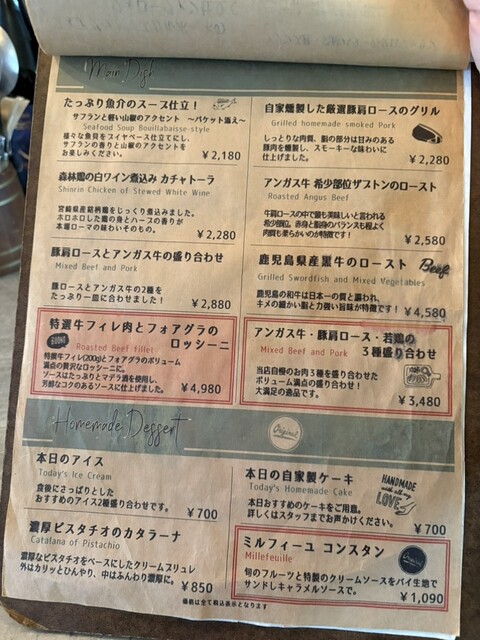 Main Dish
たっぷり魚介のスープ仕立！
サフランと軽い山椒のアクセント　～バケット添え～
Seafood Soup Bouillabaisse-style
様々な魚貝をブイヤベース仕立てにし、
サフランの香りと山椒のアクセントを
お楽しみください。
¥2,180
森林鶏の白ワイン煮込み カチャトーラ
Shinrin Chicken of Stewed White Wine
宮崎県産銘柄鶏をじっくり煮込みました。
ホロホロした鶏の身とハーブの香りが
本場ローマの味わいそのもの。
¥2,280
豚肩ロースとアンガス牛の盛り合わせ
Mixed Beef and Pork
豚ロースとアンガス牛の2種を
たっぷり一皿に合わせました！
¥2,880
特選牛フィレ肉とフォアグラの
ロッシーニ
Roasted Beef fillet
特選牛フィレ(200g)とフォアグラのボリューム
満点の贅沢なロッシーニに。
ソースはたっぷりとマデラ酒を使用し、
芳醇なコクのあるソースに仕上げました。
¥4,980
自家燻製した厳選豚肩ロースのグリル
Grilled homemade smoked Pork
しっとりな肉質、脂の部分は甘みのある
豚肉を燻製し、スモーキーな味わいに
仕上げました。
¥2,280
アンガス牛 希少部位ザストンのロースト
Roasted Angus Beef
牛肩ロースの中で最も美味しいと言われる
希少部位。赤身と脂身のバランスも程よく
肉質も柔らかいのが特徴です！
¥2,580
鹿児島県産黒牛のロースト
Beef
Grilled Swordfish and Mixed Vegetables
鹿児島の和牛は日本一の質と謳われ、
キメの細かい脂と力強い旨味が特徴です！
¥4,580
アンガス牛・豚肩ロース・若鶏の
3種盛り合わせ
Mixed Beef and Pork
当店自慢のお肉3種を盛り合わせた
ボリューム満点の盛り合わせ！
大満足の逸品です。
¥3,480
Homemade Dessert
Original
本日のアイス
Today's Ice Cream
食後にさっぱりとした
おすすめのアイス2種盛り合わせです。
¥700
濃厚ピスタチオのカタラーナ
Catalana of Pistachio
濃厚なピスタチオをベースにしたクリームブリュレ
外はカリッとひんやり、中はふんわり濃厚に。
¥850
本日の自家製ケーキ
Today's Homemade Cake
HANDMADE
with all my
LOVE
本日おすすめのケーキをご用意。
詳しくはスタッフまでお声がけください。
¥700
ミルフィーユ コンスタン
Millefeuille
旬のフルーツと特製のクリームソースをパイ生地で
サンドしキャラメルソースで。
¥1,090
価格は全て税込表示となります